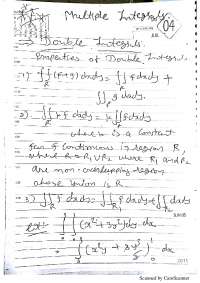 Multiple Integrals
04
⇒ Double Integrals.
Properties of Double Integrals.
1) ∬ (f+g) dxdy = ∬ f dxdy +
∬ g dxdy.
2) ∬ k f dxdy = k ∬ f dxdy
where k is a constant
fun f continuous in region R,
where R = R₁ ∪ R₂ where R₁ and R₂
are non-overlapping region
whose union is R.
3) ∬ f dxdy = ∬ f dxdy + ∬ f dxdy
∫ ∫ (x² + 3y²) dy dx
∫ (x²y + 3y³/3) dx
Scanned by CamScanner